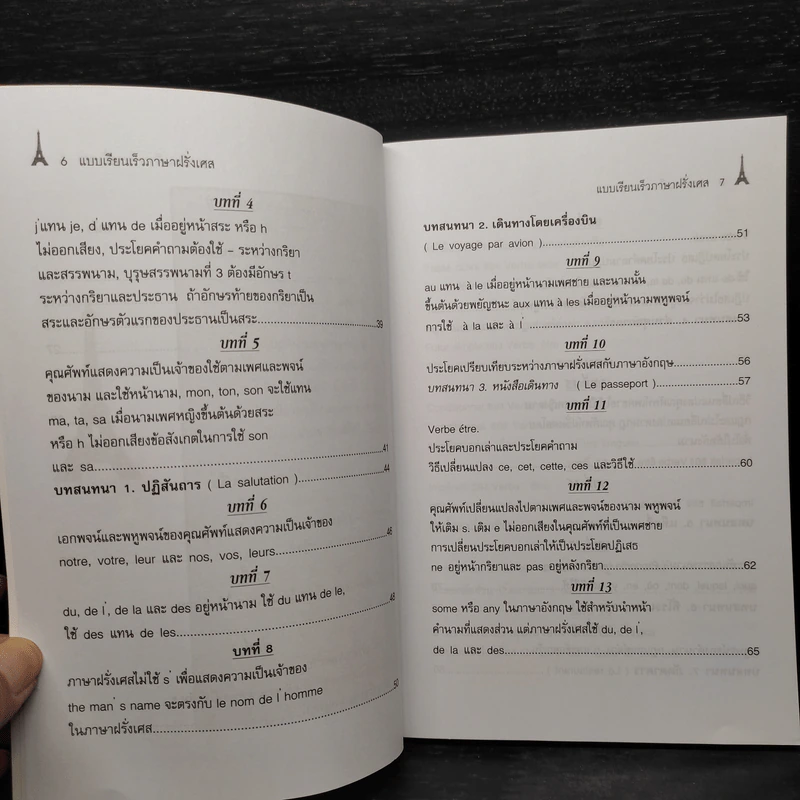 6 แบบเรียนเร็วภาษาฝรั่งเศส
บทที่ 4
j'แทน je, d' แทน de เมื่ออยู่หน้าสระ หรือ h
ไม่ออกเสียง, ประโยคคำถามต้องใช้ – ระหว่างกริยา
และสรรพนาม, บุรุษสรรพนามที่ 3 ต้องมีอักษร t
ระหว่างกริยาและประธาน ถ้าอักษรท้ายของกริยาเป็น
สระและอักษรตัวแรกของประธานเป็นสระ...39
บทที่ 5
คุณศัพท์แสดงความเป็นเจ้าของใช้ตามเพศและพจน์
ของนาม และใช้หน้านาม, mon, ton, son จะใช้แทน
ma, ta, sa เมื่อนามเพศหญิงขึ้นต้นด้วยสระ
หรือ h ไม่ออกเสียงข้อสังเกตในการใช้ son
และ sa...41
บทสนทนา 1. ปฏิสันถาร ( La salutation )...44
บทที่ 6
เอกพจน์และพหูพจน์ของคุณศัพท์แสดงความเป็นเจ้าของ
notre, votre, leur และ nos, vos, leurs...46
บทที่ 7
du, de l', de la และ des อยู่หน้านาม ใช้ du แทน de le,
ใช้ des แทน de les...48
บทที่ 8
ภาษาฝรั่งเศสไม่ใช้ s' เพื่อแสดงความเป็นเจ้าของ
the man's name จะตรงกับ le nom de l'homme
ในภาษาฝรั่งเศส...50
แบบเรียนเร็วภาษาฝรั่งเศส 7
บทสนทนา 2. เดินทางโดยเครื่องบิน
( Le voyage par avion )...51
บทที่ 9
au แทน à le เมื่ออยู่หน้านามเพศชาย และนามนั้น
ขึ้นต้นด้วยพยัญชนะ aux แทน à les เมื่ออยู่หน้านามพหูพจน์
การใช้ à la และ à l' ...53
บทที่ 10
ประโยคเปรียบเทียบระหว่างภาษาฝรั่งเศสกับภาษาอังกฤษ...56
บทสนทนา 3. หนังสือเดินทาง ( Le passeport )...57
บทที่ 11
Verbe étre.
ประโยคบอกเล่าและประโยคคำถาม
วิธีเปลี่ยนแปลง ce, cet, cette, ces และวิธีใช้...60
บทที่ 12
คุณศัพท์เปลี่ยนแปลงไปตามเพศและพจน์ของนาม พหูพจน์
ให้เติม s. เติม e ไม่ออกเสียงในคุณศัพท์ที่เป็นเพศชาย
การเปลี่ยนประโยคบอกเล่าให้เป็นประโยคปฏิเสธ
ne อยู่หน้ากริยาและ pas อยู่หลังกริยา...62
บทที่ 13
some หรือ any ในภาษาอังกฤษ ใช้สำหรับนำหน้า
คำนามที่แสดงส่วน แต่ภาษาฝรั่งเศสใช้ du, de l',
de la และ des...65